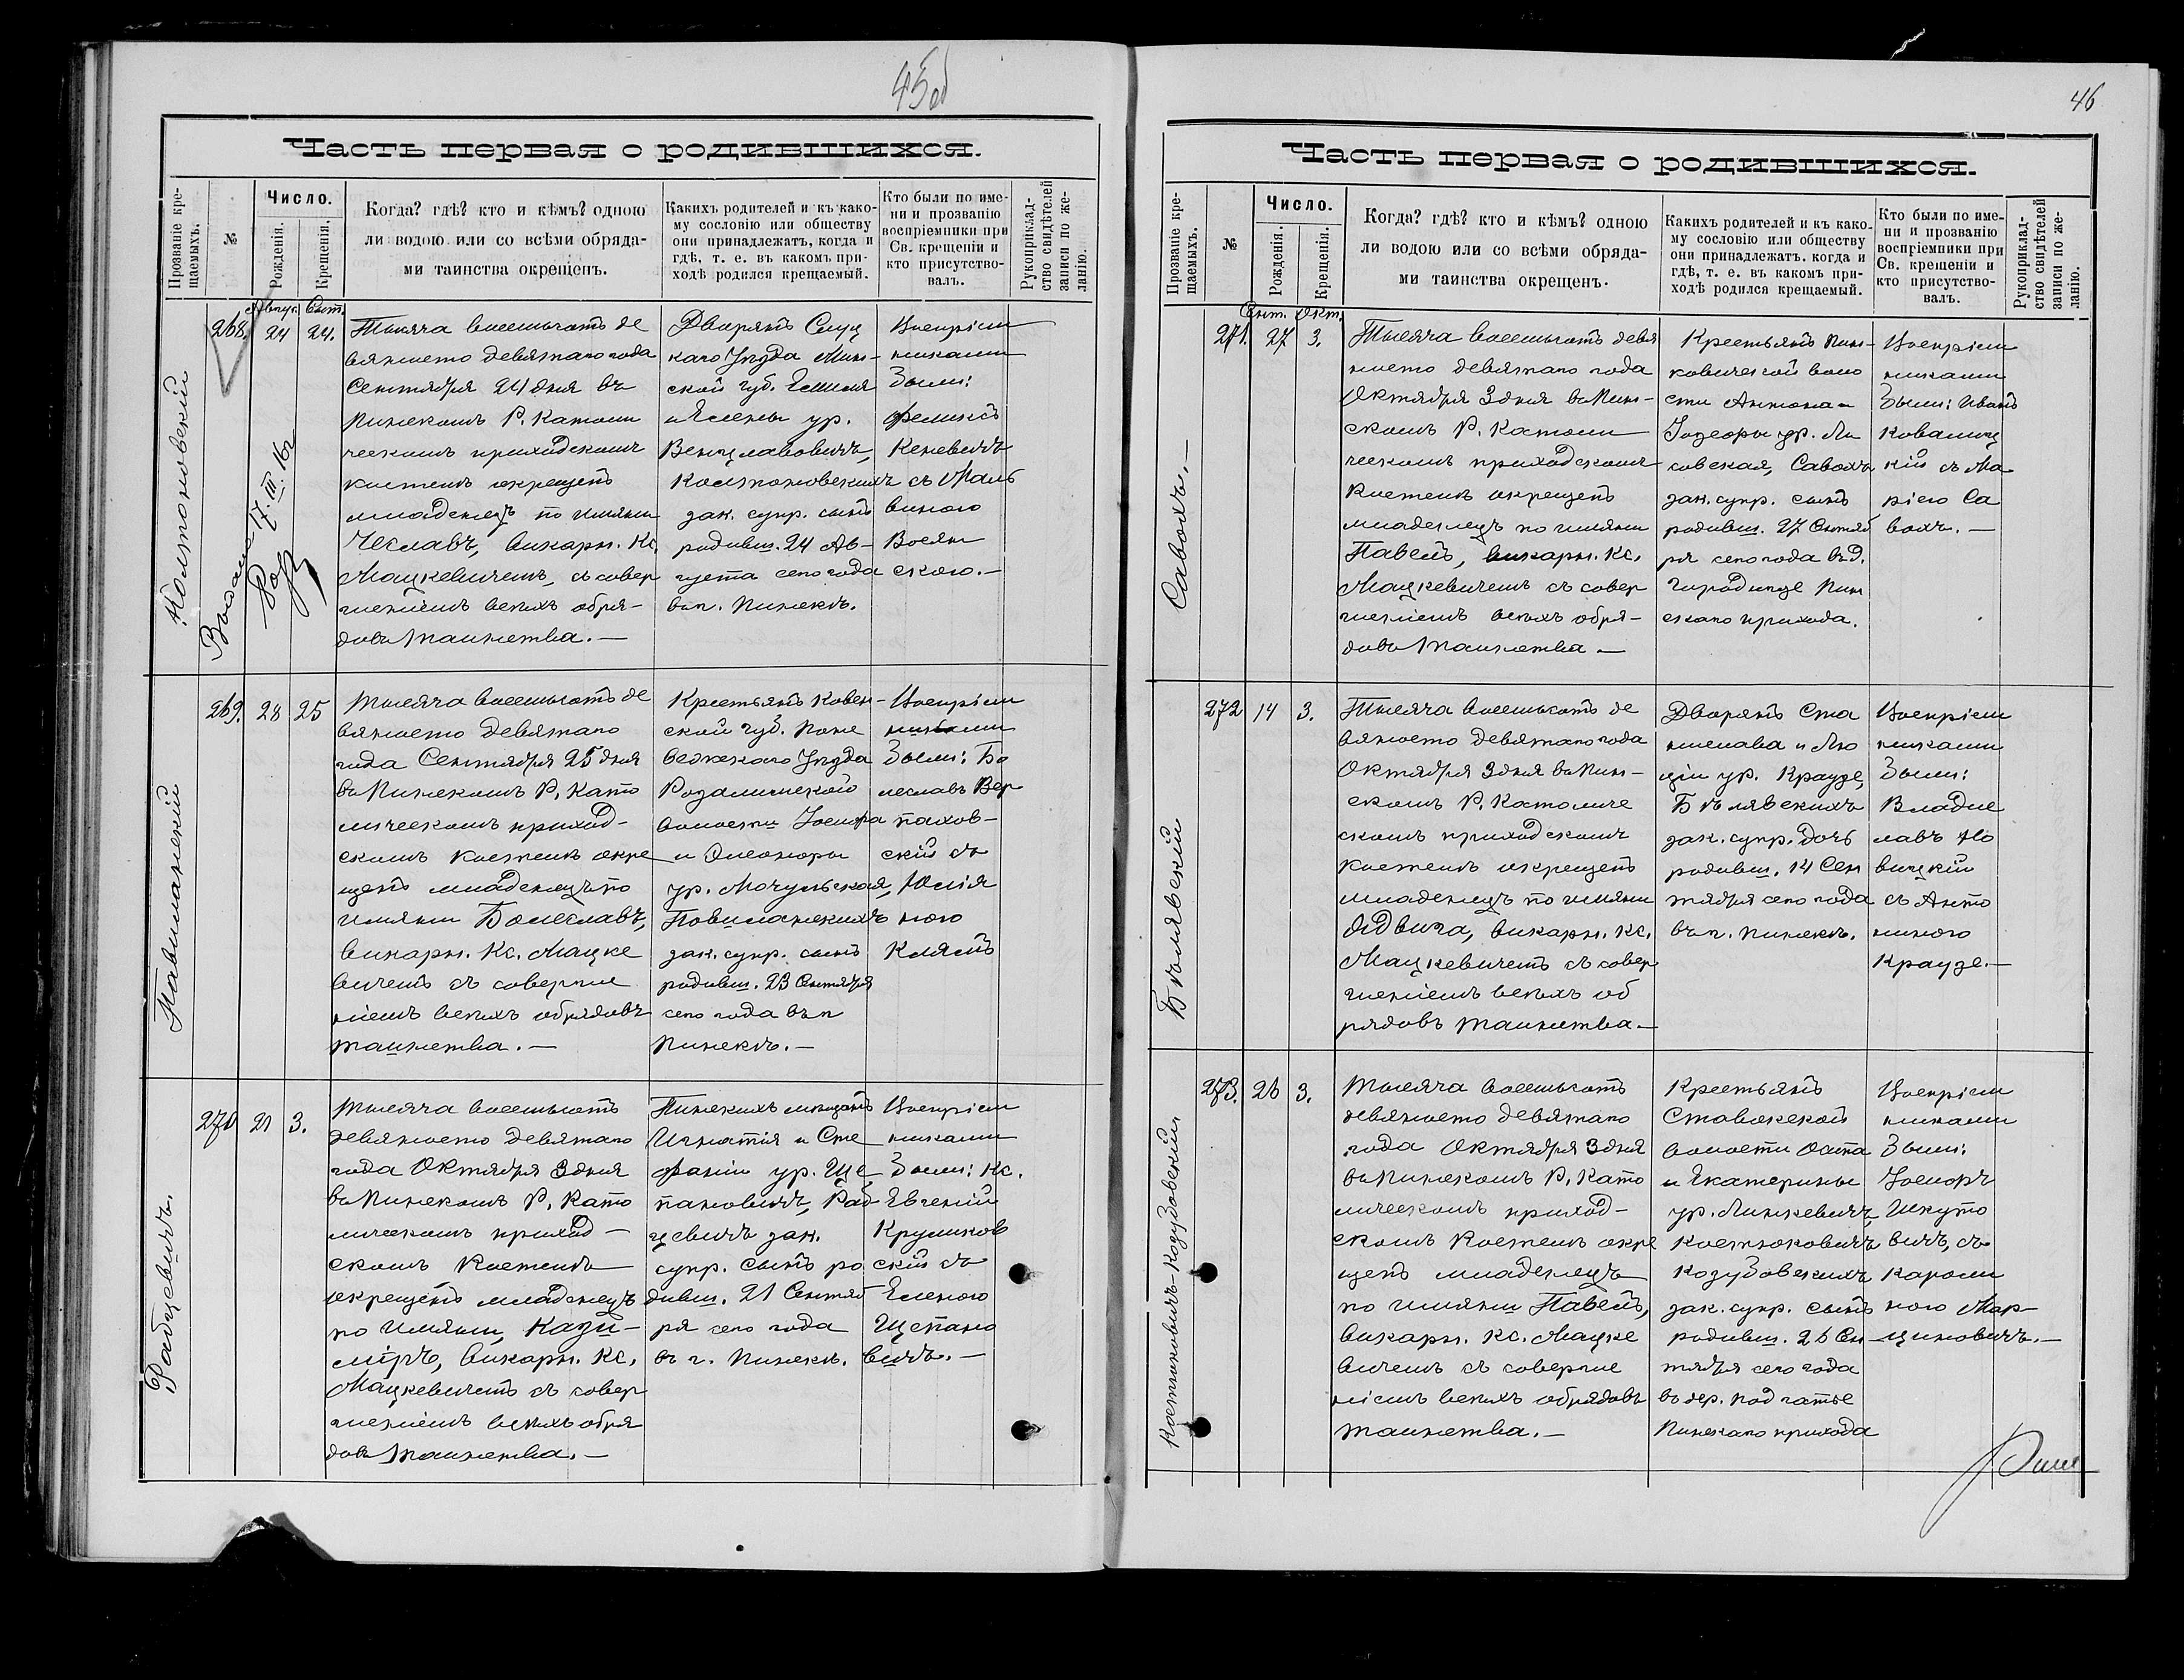 45об
Часть первая о родившихся.
Прозваніе кре-
щаемыхъ.
№
Число.
Рожденія.
Крещенія.
Когда? гдѣ? кто и кѣмъ? одною
ли водою или со всѣми обряда-
ми таинства окрещенъ.
Какихъ родителей и къ како-
му сословію или обществу
они принадлежатъ, когда и
гдѣ, т. е. въ какомъ при-
ходѣ родился крещаемый.
Кто были по име-
ни и прозванію
воспріемники при
Св. крещеніи и
кто присутство-
валъ.
Рукоприклад-
ство свидѣтелей
записи по же-
ланію.
Колтоновскій
268.
Авгус. Сент.
24 24.
17. III. 16г
Тысяча восемьсотъ де
вяносто девятаго года
Сентября 24 дня въ
Пинскомъ Р. Католи
ческомъ приходскомъ
костелѣ окрещенъ
младенецъ по имяни
Чеславъ, викарн. Кс.
Мацкевичемъ, съ совер
шеніемъ всѣхъ обря-
довъ таинства. —
Дворянъ Слуц
каго Уѣзда Мин-
ской губ.
и Елены ур.
Венцлавовичъ,
Колтоновскихъ
зак. супр. сынъ
родивш. 24 Ав-
густа сего года
въ г. Пинскѣ.
Воспріем
никами
были:
Феликсъ
Кеневичъ
съ Маль
виною
Восян
скою. —
Павиланскій
269. 28 25
Тысяча восемьсотъ де
вяносто девятаго
года Сентября 25 дня
въ Пинскомъ Р. Като
лическомъ приход-
скомъ костелѣ окре
щенъ младенецъ по
имяни Болеславъ,
викарн. Кс. Мацке
вичемъ съ соверше
ніемъ всѣхъ обрядовъ
таинства. —
Крестьянъ Ковен-
ской губ. Поне
вежскаго Уѣзда
Розалинской
волости Іосифа
и Элеоноры
ур. Мочульская,
Повиланскихъ
зак. супр. сынъ
родивш. 23 Сентября
сего года въ г
Пинскѣ. —
Воспріем
никами
были: Бо
леславъ Вер
пахов-
скій съ
Юлія
ною
Клямъ
Рабцевичъ.
270 21 3.
Тысяча восемьсотъ
девяносто девятаго
года Октября 3 дня
въ Пинскомъ Р. Като
лическомъ приход-
скомъ Костелѣ
окрещенъ младенецъ
по имяни, Кази-
міръ, викарн. Кс.
Мацкевичемъ съ совер
шеніемъ всѣхъ обря
довъ таинства. —
Пинскихъ мѣщанъ
Игнатія и Сте
фаніи ур. Ще
пановичъ, Раб-
цевичъ зак.
супр. сынъ ро
дивш. 21 Сентяб
ря сего года
въ г. Пинскѣ.
Воспріем
никами
были: Кс.
Евгеній
Крутиков
скій съ
Еленою
Щепано
вичъ. —
46
Часть первая о родившихся.
Прозваніе кре-
щаемыхъ.
№
Число.
Рожденія.
Крещенія.
Когда? гдѣ? кто и кѣмъ? одною
ли водою или со всѣми обряда-
ми таинства окрещенъ.
Какихъ родителей и къ како-
му сословію или обществу
они принадлежатъ. когда и
гдѣ, т. е. въ какомъ при-
ходѣ родился крещаемый.
Кто были по име-
ни и прозванію
воспріемники при
Св. крещеніи и
кто присутство-
валъ.
Рукоприклад-
ство свидѣтелей
записи по же-
ланію.
Савохъ. —
Сент. Окт.
271. 27 3.
Тысяча восемьсотъ девя
носто девятаго года
Октября 3 дня въ Пин-
скомъ Р. Католи
ческомъ приходскомъ
Костелѣ окрещенъ
младенецъ по имяни
Павелъ, викарн. Кс.
Мацкевичемъ съ совер
шеніемъ всѣхъ обря-
довъ таинства —
Крестьянъ Пин-
ковичской воло
сти Антона и
Іозефы ур. Ли
совская, Савохъ
зак. супр. сынъ
родивш. 27 Сентяб
ря сего года въ д.
Городище Пин
скаго прихода.
Воспріем
никами
были: Иванъ
Ковалиц
кій съ Ма
ріею Са
вохъ. —
Бѣлявскій
272 14 3.
Тысяча восемьсотъ де
вяносто девятаго года
Октября 3 дня въ Пин-
скомъ Р. Католиче
скомъ приходскомъ
Костелѣ окрещенъ
младенецъ по имяни
Ядвига, викарн. Кс.
Мацкевичемъ съ совер
шеніемъ всѣхъ об
рядовъ таинства —
Дворянъ Ста
нислава и Лю
ціи ур. Краузе,
Бѣлявскихъ
зак. супр. дочь
родивш. 14 Сен
тября сего года
въ г. Пинскѣ.
Воспріем
никами
были:
Владис
лавъ Но
вицкій
съ Анто
ниною
Краузе. —
Костюковичъ-Козубовскій
273. 26 3.
Тысяча восемьсотъ
девяносто девятаго
года Октября 3 дня
въ Пинскомъ Р. Като
лическомъ приход-
скомъ Костелѣ окре
щенъ младенецъ
по имяни Павелъ,
викарн. Кс. Мацке
вичемъ съ соверше
ніемъ всѣхъ обрядовъ
таинства. —
Крестьянъ
Ставокской
волости Осипа
и Екатерины
ур. Линкевичъ,
Костюковичъ
Козубовскихъ
зак. супр. сынъ
родивш. 26 Сен
тября сего года
въ дер. Подгатье
Пинскаго прихода
Воспріем
никами
были:
Іосифъ
Шкуто
вичъ, съ
Кароли
ною Мар-
циновичъ. —